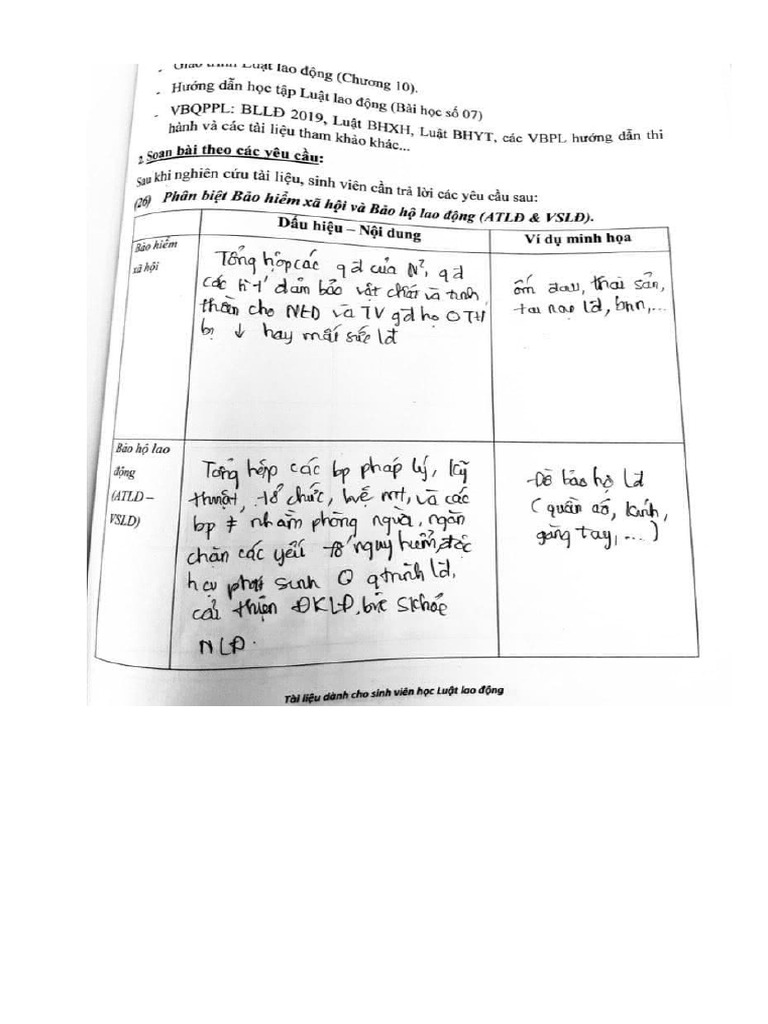 - Giáo trình Luật lao động (Chương 10).
- Hướng dẫn học tập Luật lao động (Bài học số 07)
- VBQPPL: BLLĐ 2019, Luật BHXH, Luật BHYT, các VBPL hướng dẫn thi
hành và các tài liệu tham khảo khác...
2. Soạn bài theo các yêu cầu:
Sau khi nghiên cứu tài liệu, sinh viên cần trả lời các yêu cầu sau:
(26) Phân biệt Bảo hiểm xã hội và Bảo hộ lao động (ATLĐ & VSLĐ).
Dấu hiệu – Nội dung
Ví dụ minh họa
Bảo hiểm
xã hội
Tổng hợp các qđ của N², qđ
các đảm bảo vật chất và tinh
thần cho NLĐ và TV gđ họ TH
bị ↓ hay mất sức lđ
ốm đau, thai sản,
tai nạn lđ, bnn,...
Bảo hộ lao
động
(ATLĐ –
VSLĐ)
Tổng hợp các bp pháp lý, kỹ
thuật, tổ chức, và các
bp ≠ nhằm phòng ngừa, ngăn
chặn các yếu tố nguy hiểm, độc
hại phát sinh qtrình lđ,
cải thiện ĐKLĐ, bvệ skhỏe
NLĐ.
-Đồ bảo hộ lđ
(quần áo, kính,
găng tay,...)
Tài liệu dành cho sinh viên học Luật lao động